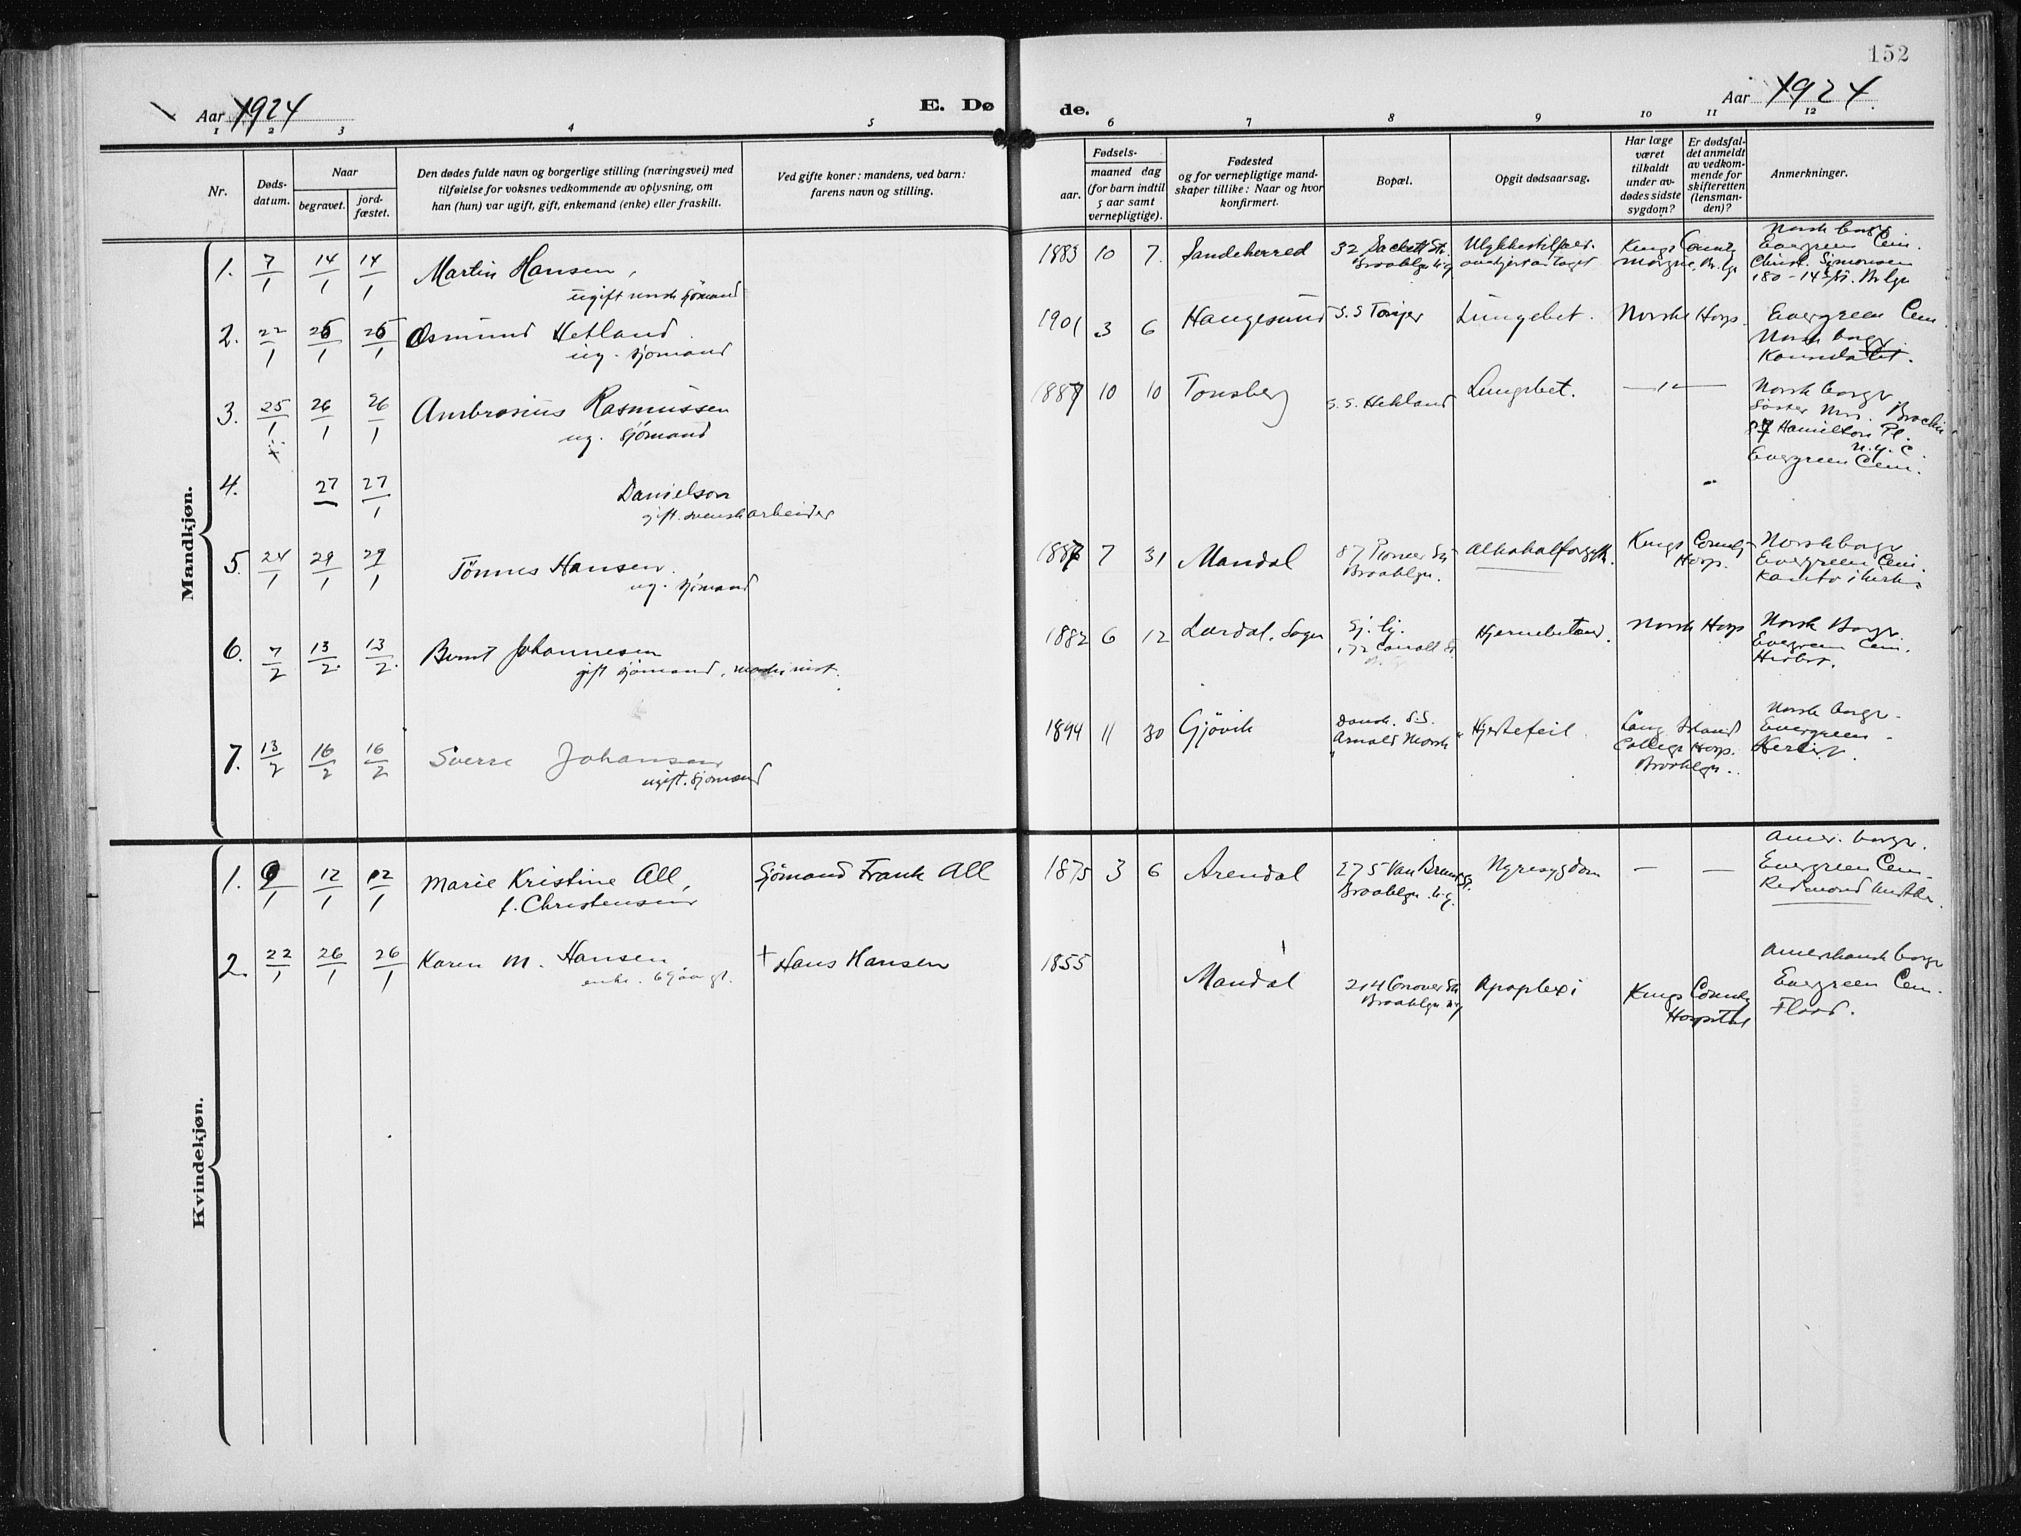 152
Aar 1924
E. Dø de.
Aar 1924.
1 2 3 4 5 6 7 8 9 10 11 12
Nr.
Døds-
datum.
Naar
begravet.
jord-
fæstet.
Den dødes fulde navn og borgerlige stilling (næringsvei) med
tilføielse for voksnes vedkommende av oplysning, om
han (hun) var ugift, gift, enkemand (enke) eller fraskilt.
Ved gifte koner: mandens, ved barn:
farens navn og stilling.
Fødsels-
aar.
maaned dag
(for barn indtil
5 aar samt
vernepligtige).
Fødested
og for vernepligtige mand-
skaper tillike: Naar og hvor
konfirmert.
Bopæl.
Opgit dødsaarsag.
Har læge
været
tilkaldt
under av-
dødes sidste
sygdom?
Er dødsfal-
det anmeldt
av vedkom-
mende for
skifteretten
(lensman-
den)?
Anmerkninger.
Mandkjøn.
1. 7/1 14/1 14/1 Martin Hansen,
ugift norsk sjömand
1883 10 7. Sandeherred
32 Sackett St.
Brooklyn N.Y
Ulykkestilfæld.
Kings County
Morgue, Br. lyn
Norsk borgr.
Evergreen Cem.
Christ. Simonsen
180 - 14 St. Br lyn
2. 22/1 26/1 26/1 Osmund Hetland
ug. sjömand
1901 3 6 Haugesund S.S Torjer Lungebet. Norsk Hosp.
Evergreen Cem.
Norsk borgr.
Konsulatet.
3. 25/1 26/1 26/1 Ambrosius Rasmussen
ug. sjömand
1887 10 10 Tonsberg S.S. Hekland Lungebet. — " —
Norsk borgr
Söster Mrs.
87 Hamilton Pl.
N.Y.C.
Evergreen Cem.
4. 27 27/1 Danielson
gift. svensk arbeider
5. 24/1 29/1 29/1 Tönnes Hansen.
ug. sjömand
1886 7 31 Mandal
87 Pioneer St.
Brooklyn.
Alkoholforgift.
Kings County
Hosp.
Norsk borgr
Evergreen Cem.
6. 7/2 13/2. 13/2. Bernt Johannesen
gift sjömand, maskinist.
1882 6 12 Lærdal, Sogn
172 Caroll St.
Hjernebetænd. Norsk Hosp
Norsk Borgr.
Evergreen Cem.
7. 13/2 16/2 16/2 Sverre Johansen
ugift. sjömand
1894 11 30 Gjövik
Dansk. S.S.
Arnold Mærsk
Hjertefeil.
Long Island
College Hosp.
Brooklyn.
Norsk borgr.
Evergreen
Kvindekjøn.
1. 9/1 12/1 12/1 Marie Kristine All,
f. Christensen
Sjömand Frank All
1875 3 6 Arendal
275 Van Brunt St.
Brooklyn. N.Y.
Nyresygdom — —
Amer. borgr.
Evergreen Cem.
Redmond
2. 22/1 26/1 26/1 Karen M. Hansen
enke. 69 aar gl.
+ Hans Hansen
1855 Mandal
214 Conover St.
Brooklyn N.Y
Apoplexi
Kings County
Hospital
Amerikansk borgr
Evergreen Cem.
Flood.